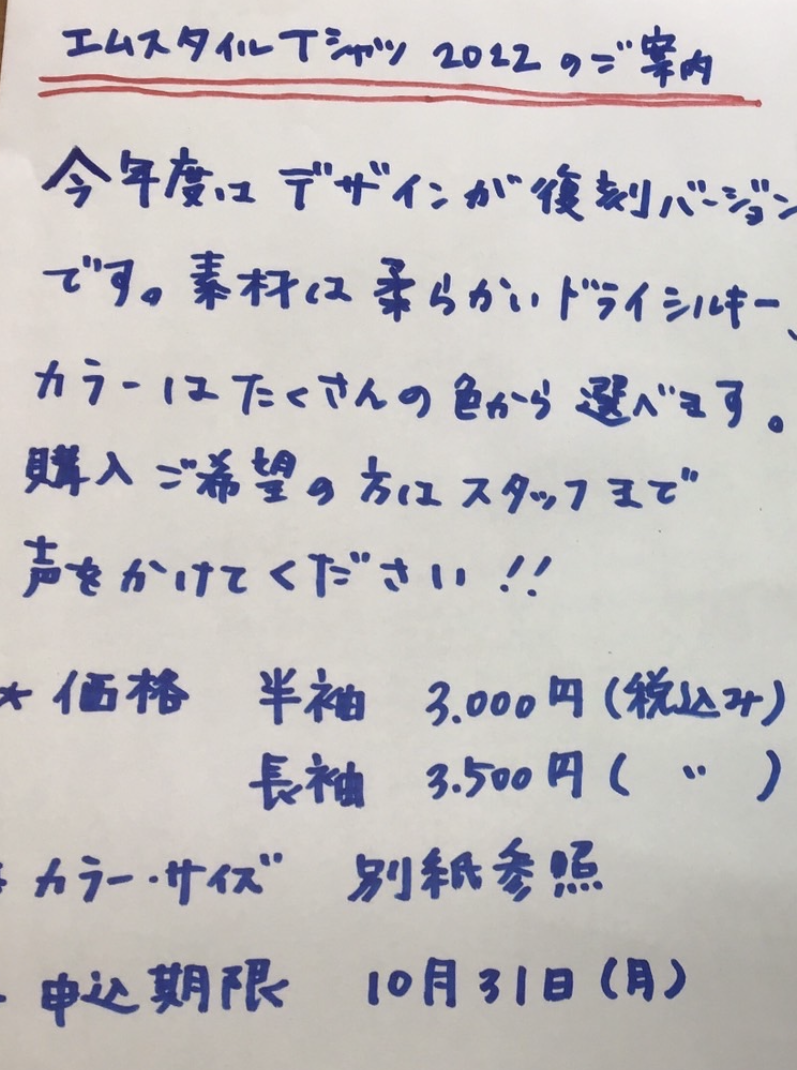 エムスタイルTシャツ 2022 のご案内
今年度は デザインが 復刻バージョン
です。素材は 柔らかい ドライシルキー、
カラーは たくさんの 色から 選べます。
購入 ご希望の 方は スタッフまで
声を かけて ください !!
★ 価格 半袖 3.000円(税込み)
長袖 3.500円( 〃 )
カラー・サイズ 別紙参照
申込期限 10月31日(月)